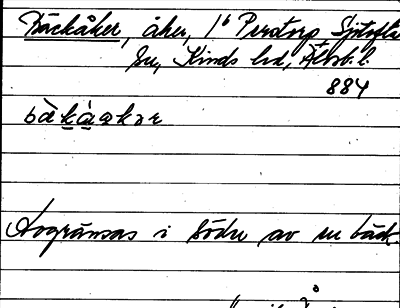 Bäckåker, åker, 1⁶ Perstorp Sjötofta
sn, Kinds hd, Älvsb. l.
884
bàkåakər
Avgränsas i söder av en bäck.